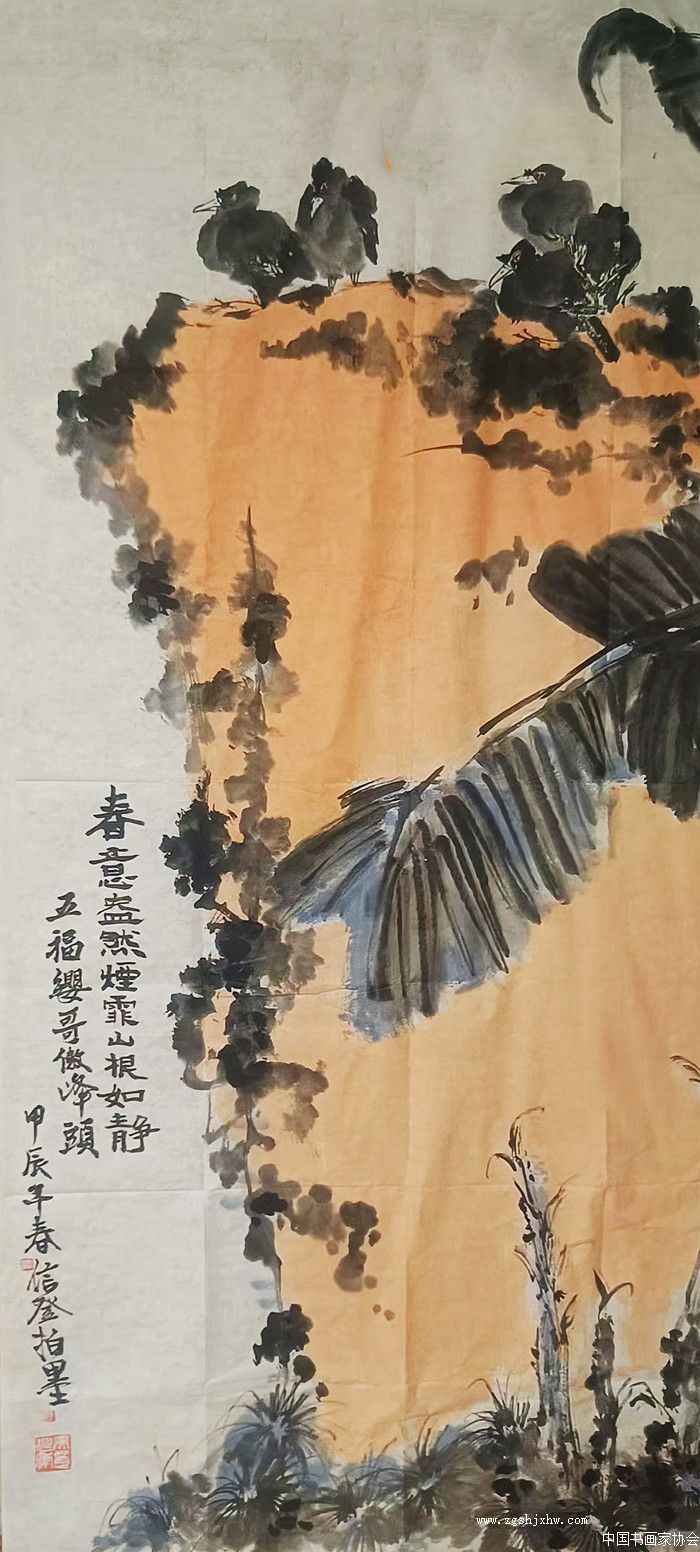 春意盎然煙霏山根如静
五福缨哥傲峰頭
甲辰年春信登拍墨
www.zgshjxhw.com
中国书画家协会